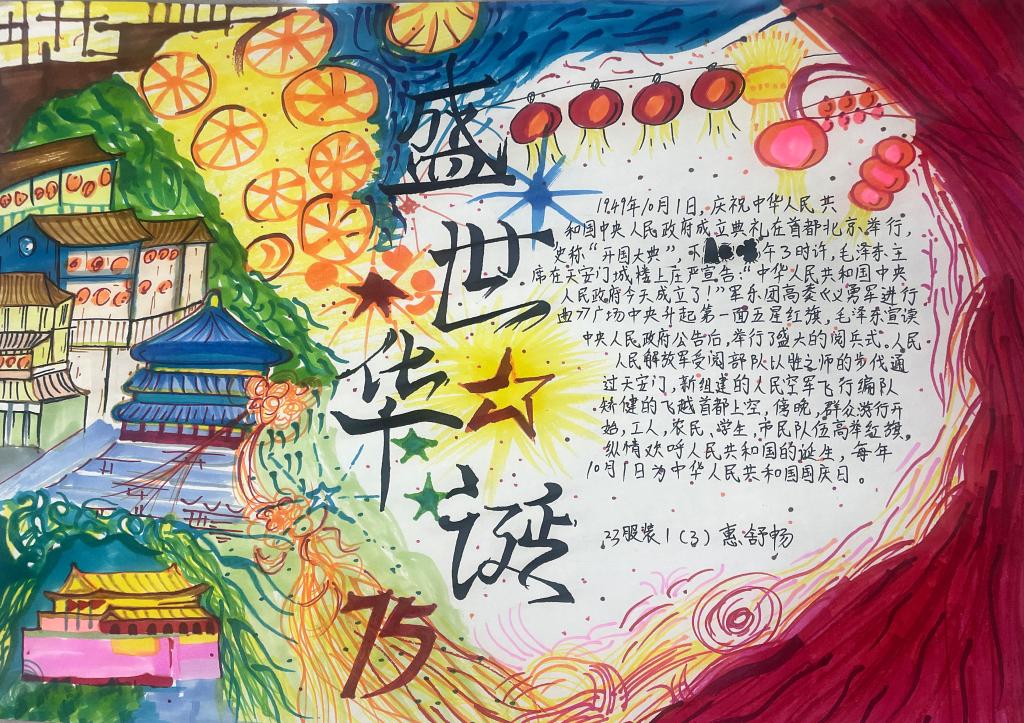 盛世华诞
75
1949年10月1日,庆祝中华人民共
和国中央人民政府成立典礼在首都北京举行,
史称“开国大典”,下午3时许,毛泽东主
席在天安门城楼上庄严宣告:“中华人民共和国中央
人民政府今天成立了!”军乐团高奏《义勇军进行
曲》广场中央升起第一面五星红旗,毛泽东宣读
中央人民政府公告后,举行了盛大的阅兵式。人民
人民解放军受阅部队以胜之师的步伐通
过天安门,新组建的人民空军飞行编队
矫健的飞越首都上空,傍晚,群众游行开
始,工人,农民,学生,市民队伍高举红旗,
纵情欢呼人民共和国的诞生,每年
10月1日为中华人民共和国国庆日。
23服装1(3) 惠舒畅